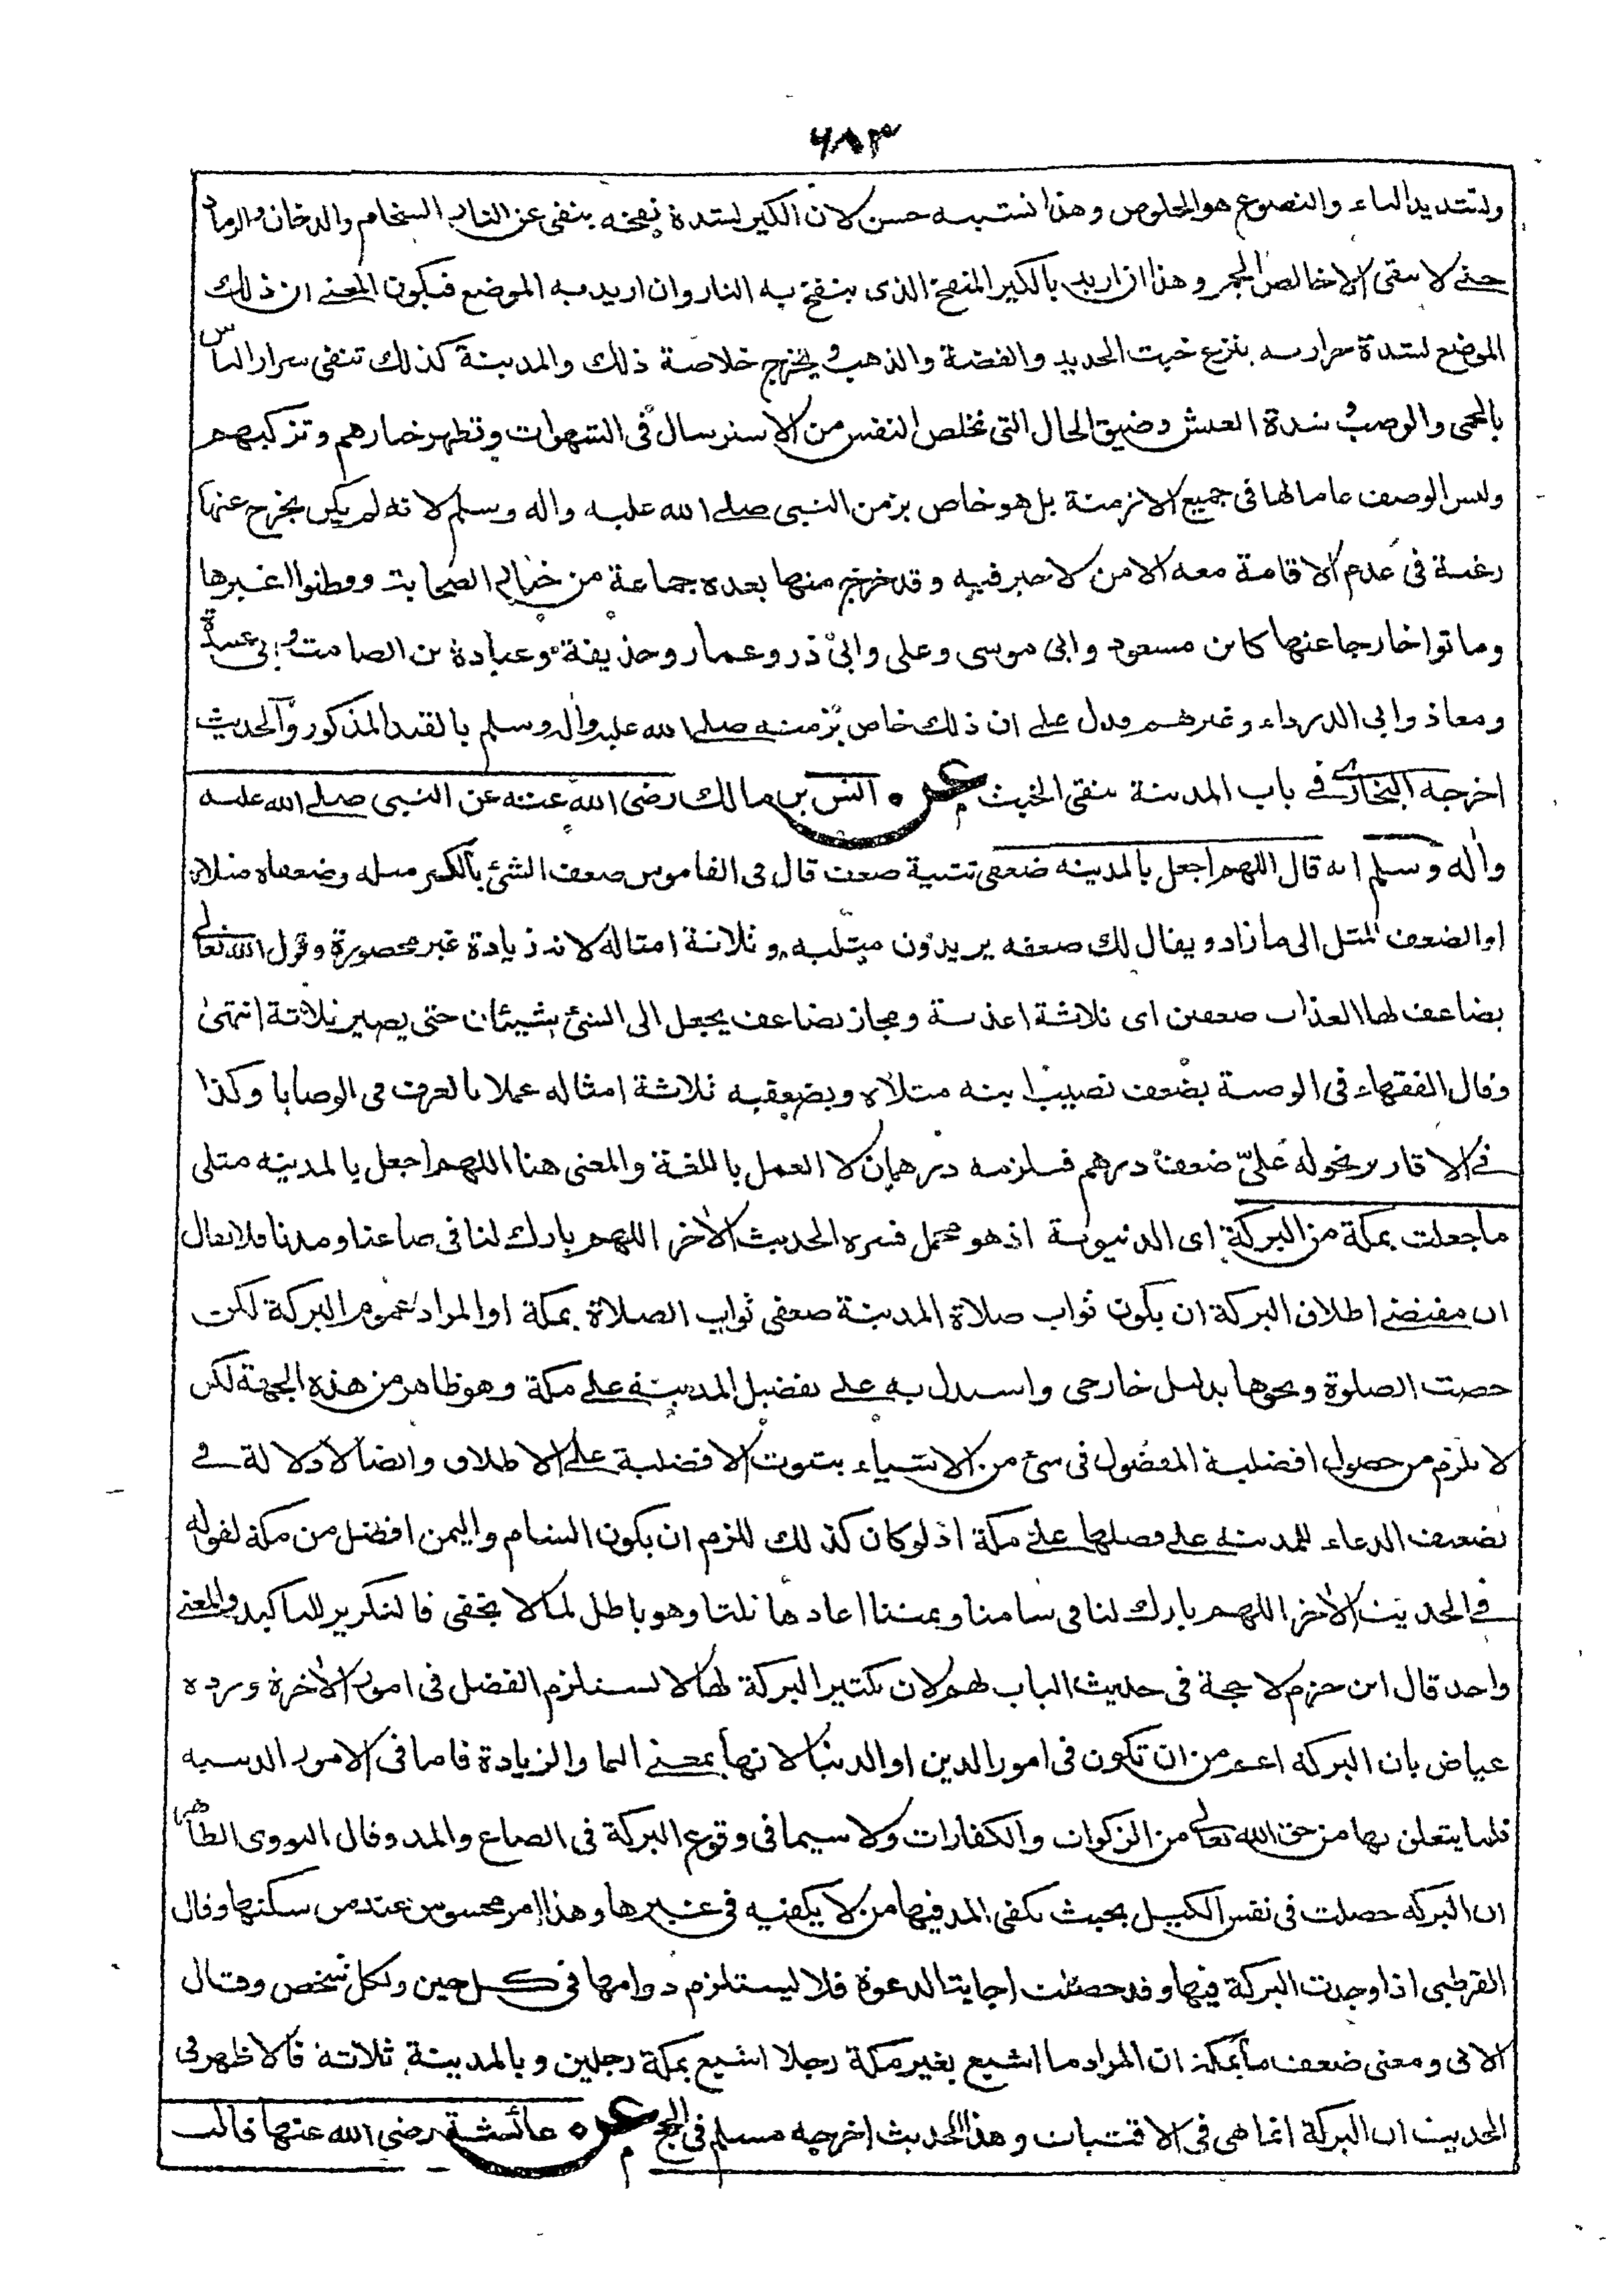 ٦٨٣
وبتشديد الياء والنصوع هو الخلوص وهذا تشبيه حسن لان الكير لشدة نفخه ينفى عن النار السخام والدخان والرماد
حتى لا يبقى الا خالص الجمر وهذا ان اريد بالكير المنفخ الذى ينفخ به النار وان اريد به الموضع فيكون المعنى ان ذلك
الموضع لشدة حرارته ينزع خبث الحديد والفضة والذهب ويخرج خلاصة ذلك والمدينة كذلك تنفى شرار الناس
بالحمى والوصب وشدة العيش وضيق الحال التى تخلص النفس من الاسترسال فى الشهوات وتطهر خيارهم وتزكيهم
وليس الوصف عاما لها فى جميع الازمنة بل هو خاص بزمن النبى صلى الله عليه واله وسلم لانه لم يكن يخرج عنها
رغبة فى عدم الاقامة معه الا من لا خير فيه وقد خرج منها بعده جماعة من خيار الصحابة وقطنوا غيرها
وماتوا خارجا عنها كابن مسعود وابى موسى وعلى وابى ذر وعمار وحذيفة وعبادة بن الصامت وابى عبيدة
ومعاذ وابى الدرداء وغيرهم فدل على ان ذلك خاص بزمنه صلى الله عليه واله وسلم بالقيد المذكور والحديث
اخرجه البخارى فى باب المدينة تنفى الخبث عن انس بن مالك رضى الله عنه عن النبى صلى الله عليه
واله وسلم انه قال اللهم اجعل بالمدينة ضعفى تثنية ضعف قال فى القاموس ضعف الشئ بالكسر مثله وضعفاه مثلاه
او الضعف المثل الى ما زاد ويقال لك ضعفه يريدون مثليه وثلاثة امثاله لانه زيادة غير محصورة وقول الله تعالى
يضاعف لها العذاب ضعفين اى ثلاثة اعذبة ومجاز يضاعف يجعل الى الشئ شيئان حتى يصير ثلاثة انتهى
وقال الفقهاء فى الوصية بضعف نصيب ابنه مثلاه وبضعفيه ثلاثة امثاله عملا بالعرف فى الوصايا وكذا
فى الاقارير نحو له علىّ ضعف درهم فيلزمه درهمان لا العمل باللغة والمعنى هنا اللهم اجعل بالمدينة مثلى
ما جعلت بمكة من البركة اى الدنيوية اذ هو مجمل فسره الحديث الاخر اللهم بارك لنا فى صاعنا ومدنا فلا يقال
ان مقتضى اطلاق البركة ان يكون ثواب صلاة المدينة ضعفى ثواب الصلاة بمكة او المراد عموم البركة لكن
خصت الصلوة ونحوها بدليل خارجى واستدل به على تفضيل المدينة على مكة وهو ظاهر من هذه الجهة لكن
لا يلزم من حصول افضلية المفضول فى شئ من الاشياء ثبوت الافضلية على الاطلاق وايضا لا دلالة فى
تضعيف الدعاء للمدينة على فضلها على مكة اذ لو كان كذلك للزم ان يكون الشام واليمن افضل من مكة لقوله
فى الحديث الاخر اللهم بارك لنا فى شامنا ويمننا اعادها ثلثا وهو باطل لما لا يخفى فالتكرير للتاكيد والمعنى
واحد قال ابن حزم لا حجة فى حديث الباب لهم لان تكثير البركة لها لا يستلزم الفضل فى امور الاخرة ورده
عياض بان البركة اعم من ان تكون فى امور الدين او الدنيا لانها بمعنى النما والزيادة فاما فى الامور الدينية
فلما يتعلق بها من حق الله تعالى من الزكوات والكفارات ولا سيما فى وقوع البركة فى الصاع والمد وقال النووى الظاهر
ان البركة حصلت فى نفس الكيل بحيث يكفى المد فيها من لا يكفيه فى غيرها وهذا امر محسوس عند من سكنها وقال
القرطبى اذا وجدت البركة فيها وقد حصلت اجابة الدعوة فلا يستلزم دوامها فى كل حين ولكل شخص وقال
الابى ومعنى ضعف ما بمكة ان المراد ما اشبع بغير مكة رجلا اشبع بمكة رجلين وبالمدينة ثلاثة فالاظهر فى
الحديث ان البركة انما هى فى الاقتيات وهذا الحديث اخرجه مسلم فى الحج عن عائشة رضى الله عنها قالت